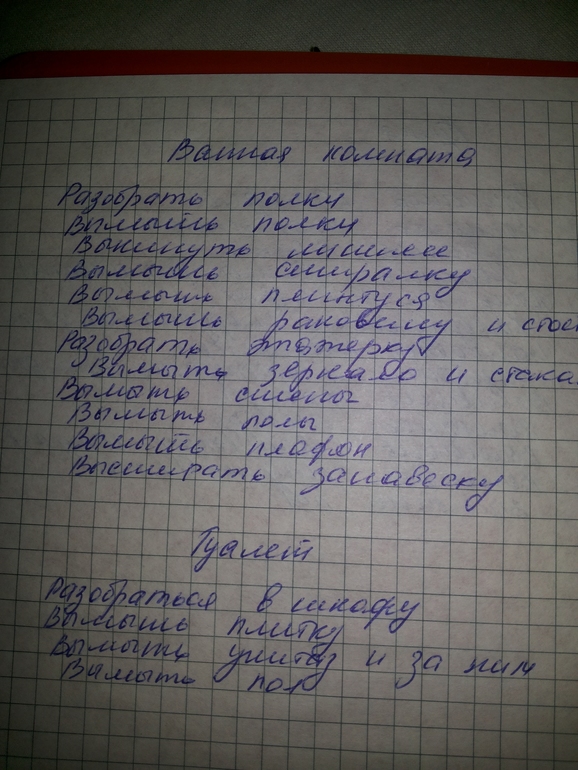 Ванная комната
Разобрать полки
Вымыть полки
Выкинуть лишнее
Вымыть стиралку
Вымыть плинтуся
Вымыть раковину и
Разобрать этажерку
Вымыть зеркало и стака
Вымыть стены
Вымыть полы
Вымыть плафон
Выстирать занавеску
Туалет
Разобраться в шкафу
Вымыть плитку
Вымыть унитаз и за ним
Вымыть пол